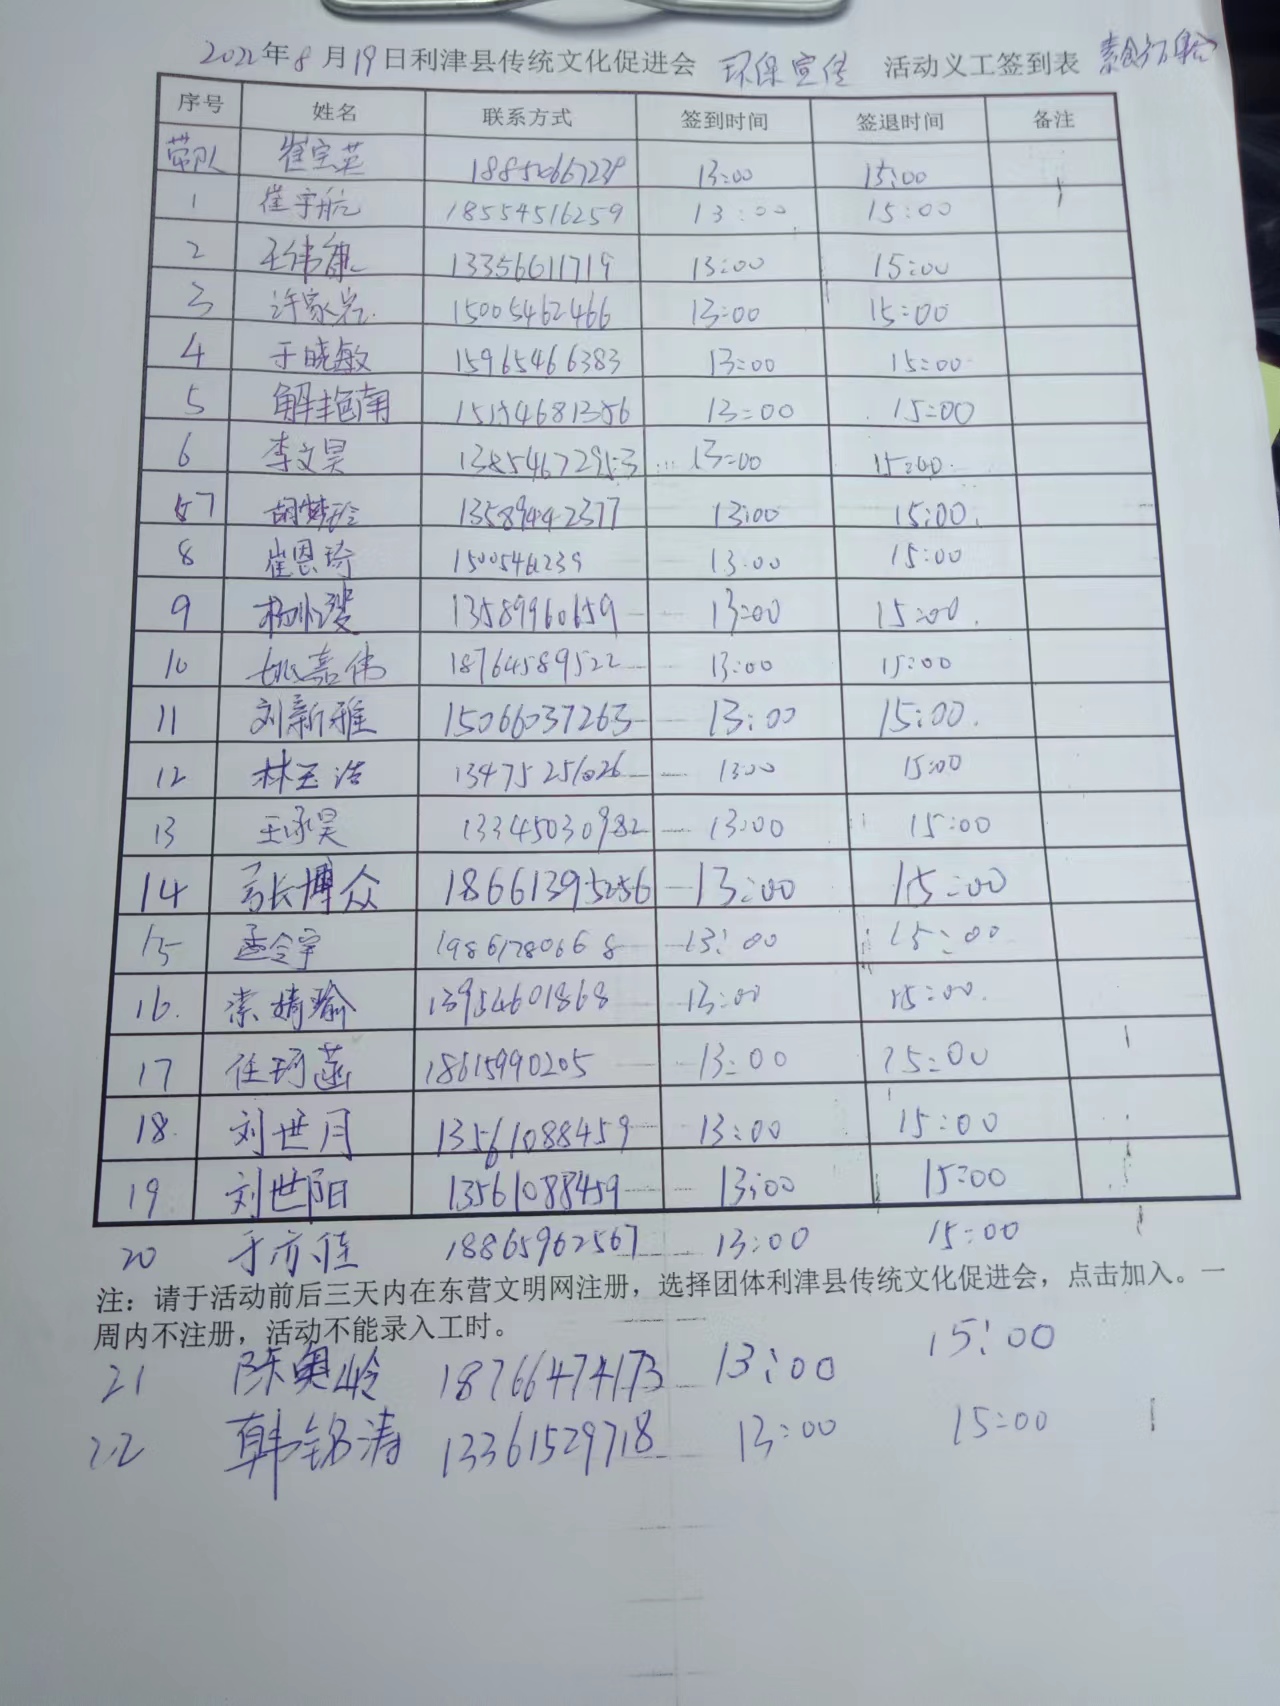 2022年8月19日利津县传统文化促进会 环保宣传 活动义工签到表
序号 姓名 联系方式 签到时间 签退时间 备注
带队 崔宝英 18850667239 13:00 15:00
1 崔宇航 18554516259 13:00 15:00
2 王伟康 13356611719 13:00 15:00
3 许家岩 15005462466 13:00 15:00
4 于晓敏 15965466383 13:00 15:00
5 解艳南 15154681356 13:00 15:00
6 李文昊 13854672953 13:00 15:00
7 胡梦玲 13589442377 13:00 15:00
8 崔恩琦 1500546239 13:00 15:00
9 13589960659 13:00 15:00
10 姚嘉伟 18764589522 13:00 15:00
11 刘新雅 15066037263 13:00 15:00
12 林玉洁 13475251026 13:00 15:00
13 王承昊 13345030982 13:00 15:00
14 张博众 18661395256 13:00 15:00
15 孟令宇 19861780668 13:00 15:00
16. 綦婧瑜 13954601868 13:00 15:00
17 任珂菡 18615990205 13:00 15:00
18. 刘世月 13561088459 13:00 15:00
19 刘世阳 13561088459 13:00 15:00
20 于亦佳 18865962567 13:00 15:00
注：请于活动前后三天内在东营文明网注册，选择团体利津县传统文化促进会，点击加入。一
周内不注册，活动不能录入工时。
21 陈奥岭 18766474173 13:00 15:00
22 韩铭涛 13361529718 13:00 15:00